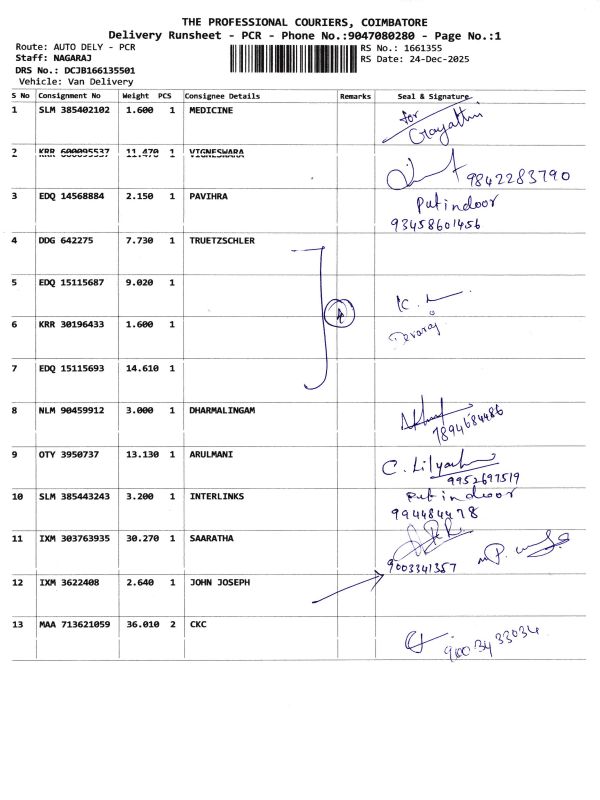 THE PROFESSIONAL COURIERS, COIMBATORE
Delivery Runsheet - PCR - Phone No.:9047080280 - Page No.:1
Route: AUTO DELY - PCR
RS No.: 1661355
Staff: NAGARAJ
RS Date: 24-Dec-2025
DRS No.: DCJB166135501
Vehicle: Van Delivery
S No Consignment No Weight PCS Consignee Details Remarks Seal & Signature
1 SLM 385402102 1.600 1 MEDICINE for Gayathri
2 KRR 600095537 11.470 1 VIGNESWARA 9842283790
3 EDQ 14568884 2.150 1 PAVIHRA Put indoor
93458601456
4 DDG 642275 7.730 1 TRUETZSCHLER
5 EDQ 15115687 9.020 1
4
6 KRR 30196433 1.600 1 Devaraj
7 EDQ 15115693 14.610 1
8 NLM 90459912 3.000 1 DHARMALINGAM
7894684486
9 OTY 3950737 13.130 1 ARULMANI
9952697519
10 SLM 385443243 3.200 1 INTERLINKS Put indoor
994484478
11 IXM 303763935 30.270 1 SAARATHA
9003341357
12 IXM 3622408 2.640 1 JOHN JOSEPH
13 MAA 713621059 36.010 2 CKC
9003433034